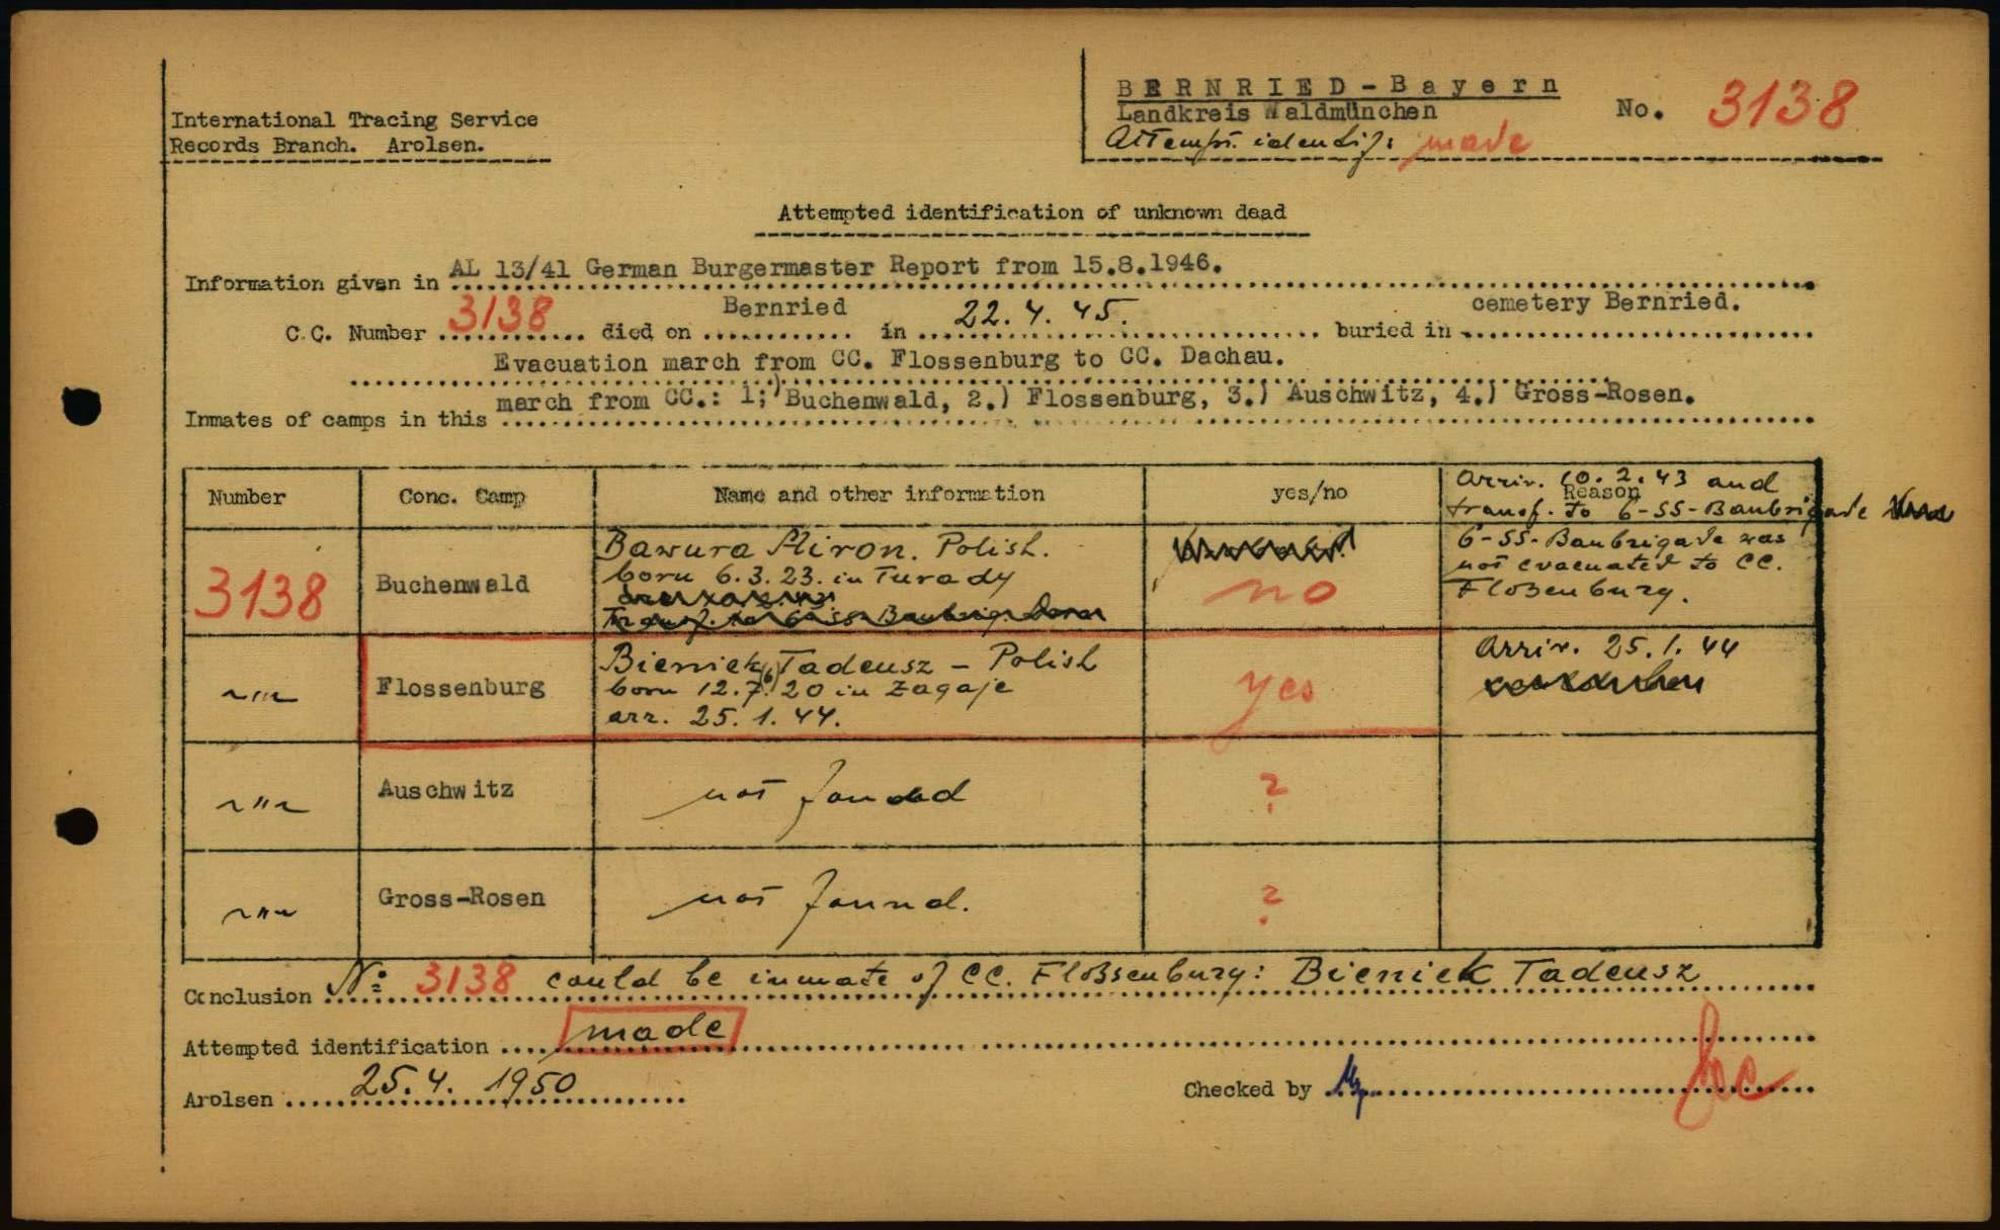 International Tracing Service
Records Branch. Arolsen.
BERNRIED-Bayern
Landkreis Waldmünchen
No. 3138
Attempt. identif: made
Attempted identification of unknown dead
Information given in AL 13/41 German Burgermaster Report from 15.8.1946.
C.C. Number 3138 died on Bernried in 22.4.45. buried in cemetery Bernried.
Evacuation march from CC. Flossenburg to CC. Dachau.
Inmates of camps in this march from CC.: 1;) Buchenwald, 2.) Flossenburg, 3.) Auschwitz, 4.) Gross-Rosen.
Number Conc. Camp Name and other information yes/no Reason
Arriv. 10.2.43 and
transf. to 6-SS-Baubrigade
3138 Buchenwald Bawura Miron. Polish. no
born 6.3.23. in Turady
6-SS-Baubrigade was
not evacuated to CC.
Floßenburg.
-"- Flossenburg Bieniek Tadeusz - Polish yes Arriv. 25.1.44
born 12.7.(6) 20 in Zagaje
arr. 25.1.44.
-"- Auschwitz not found ?
-"- Gross-Rosen not found. ?
Conclusion No: 3138 could be inmate of CC. Floßenburg: Bieniek Tadeusz
Attempted identification made
Arolsen 25.4. 1950 Checked by